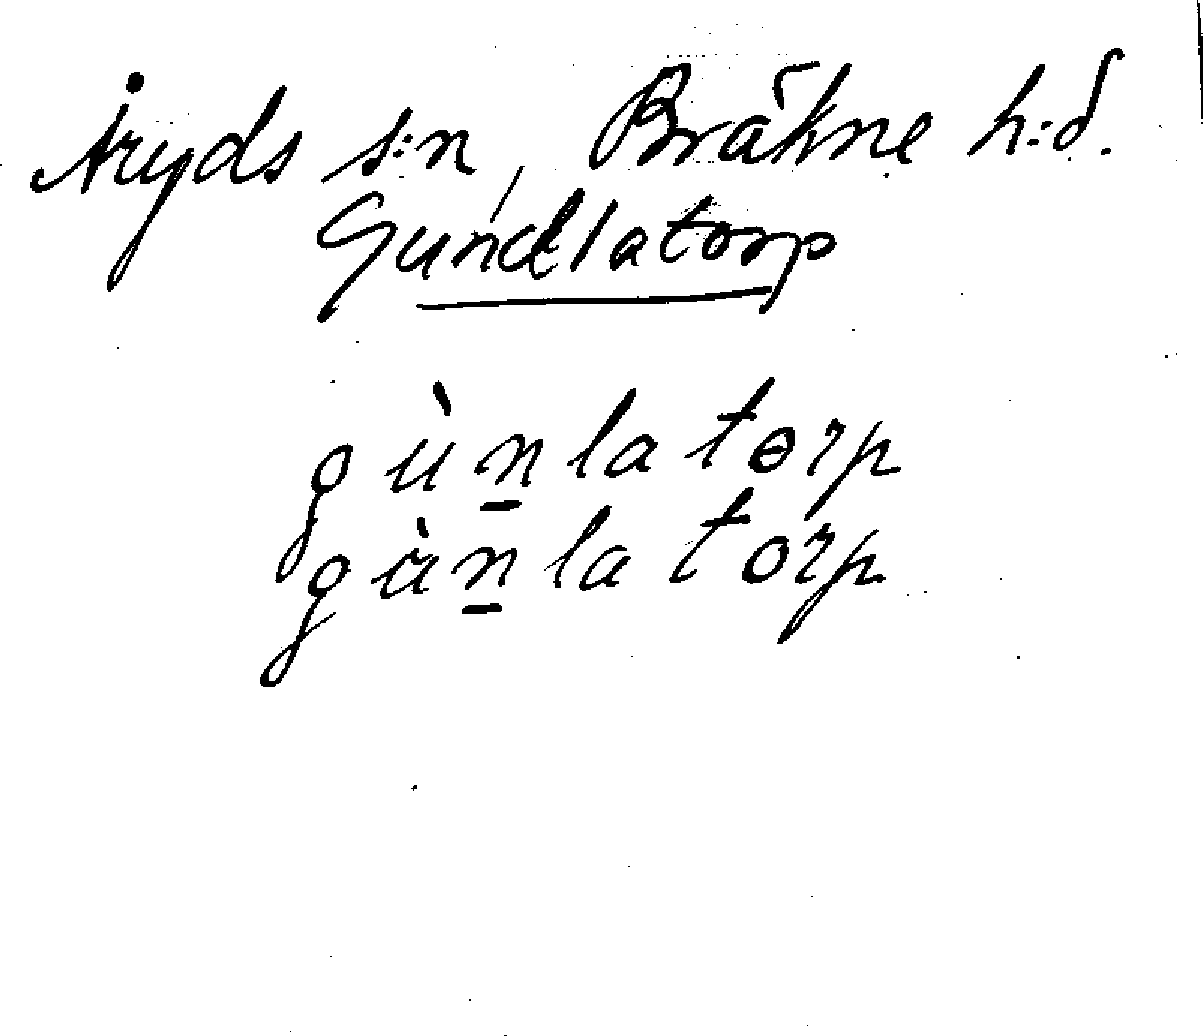 Åryds s:n, Bräkne h:d.
Gundlatorp
gùn̲latɵrp
gàn̲latorp